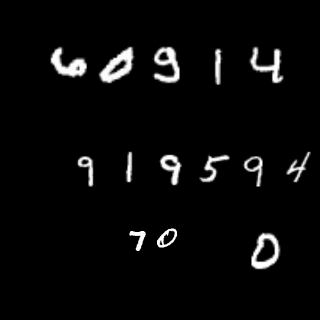 60914
919594
70 0